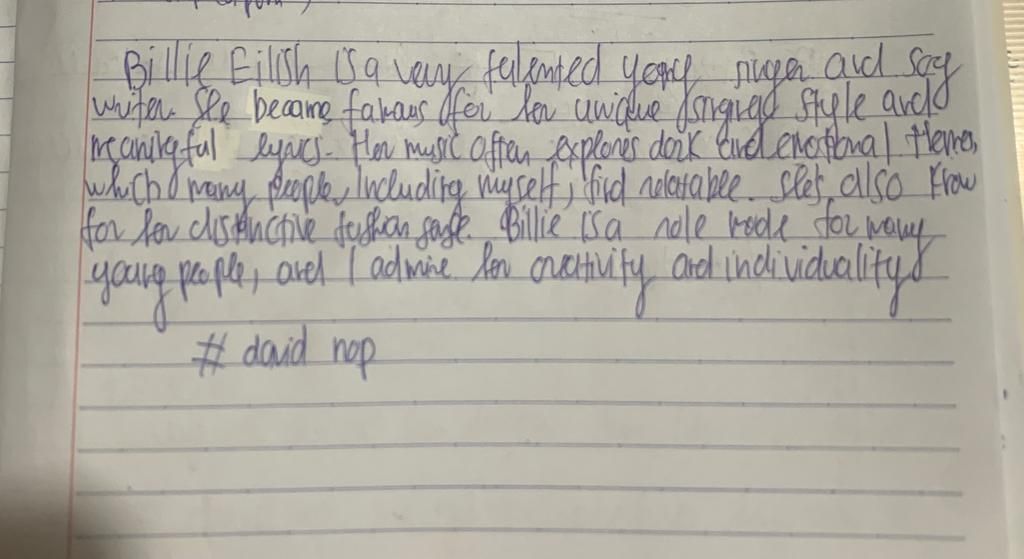 Billie Eilish is a very talented young singer and song
writer. She became famous for her unique singing style and
meaningful lyrics. Her music often explores dark and emotional themes,
which many people, Including myself, find relatable. She's also know
for her distinctive fashion
Billie is a role mode for many
young people, and I admire her creativity and individuality
# david nop